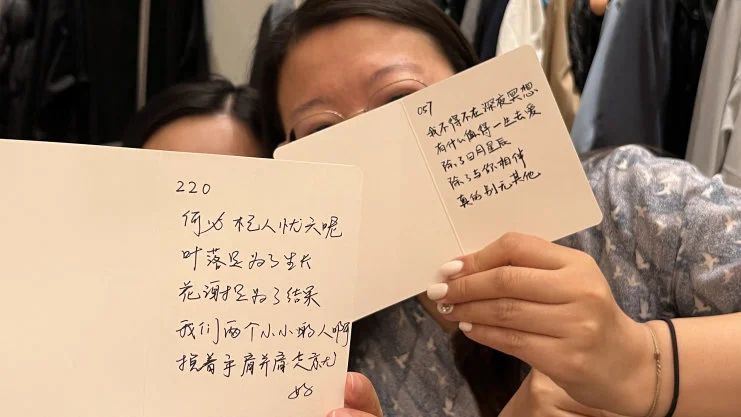 220
何必杞人忧天呢
叶落是为了生长
花谢是为了结果
我们两个小小的人啊
挽着手肩并肩走就
好
057
我不得不在深夜冥想
有什么值得一生去爱
除了日月星辰
除了与你相伴
真的别无其他